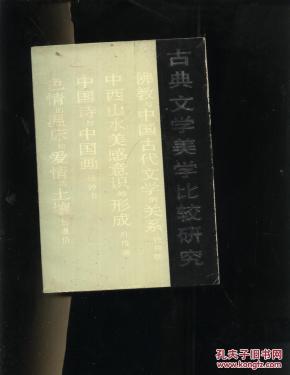 古典文学美学比较研究
佛教与中国古代文学的关系
中西山水美感意识的形成
中国诗与中国画
色情的温床和爱情的土壤
孔夫子旧书网